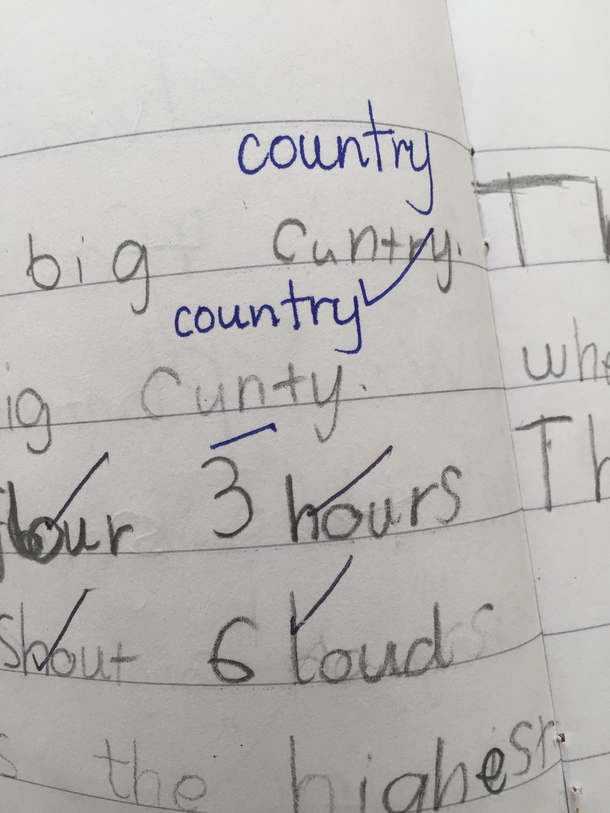 country
big Cuntry. Th
country
ig Cunty. whe
flour 3 hours Th
Shout 6 loud
the highest